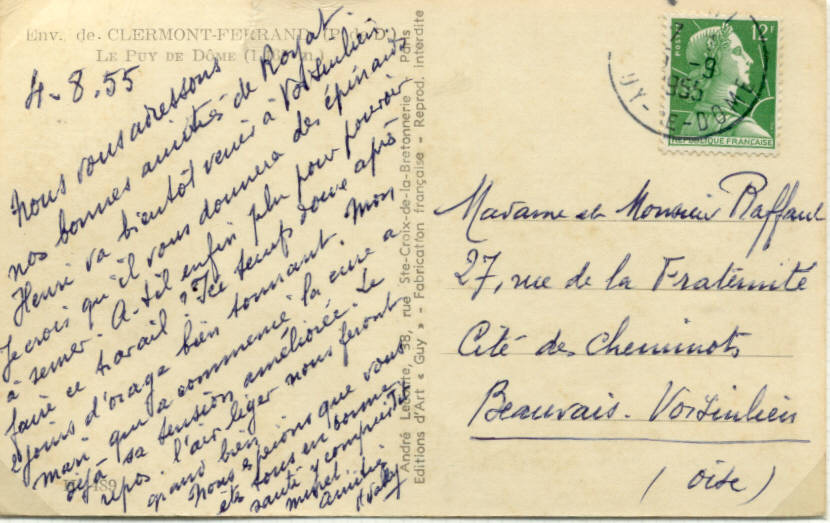 Env. de CLERMONT-FERRAND
LE PUY DE DÔME
4-8.55
Nous vous adressons
nos bonnes amitiés de Royat
Henri va bientôt venir à Voisinlieu
Je crois qu'il vous donnera des épinards
à semer. A-t-il enfin plu pour pouvoir
faire ce travail? Ici temps doux après
2 jours d'orage bien tonnant. Mon
mari qui a commencé la cure a
déjà sa tension améliorée. Le
repos, l'air léger nous feront
grand bien.
Nous espérons que vous
êtes tous en bonne
santé y compris
Michel
Amitiés
André Leconte, 38, rue Ste-Croix-de-la-Bretonnerie - Paris
Editions d'Art « Guy » - Fabrication française - Reprod. interdite
POSTES
12F
REPUBLIQUE FRANÇAISE
-9
1955
UY-E-DOME
Madame et Monsieur Raffaul
27, rue de la Fraternité
Cité des Cheminots
Beauvais-Voisinlieu
(Oise)